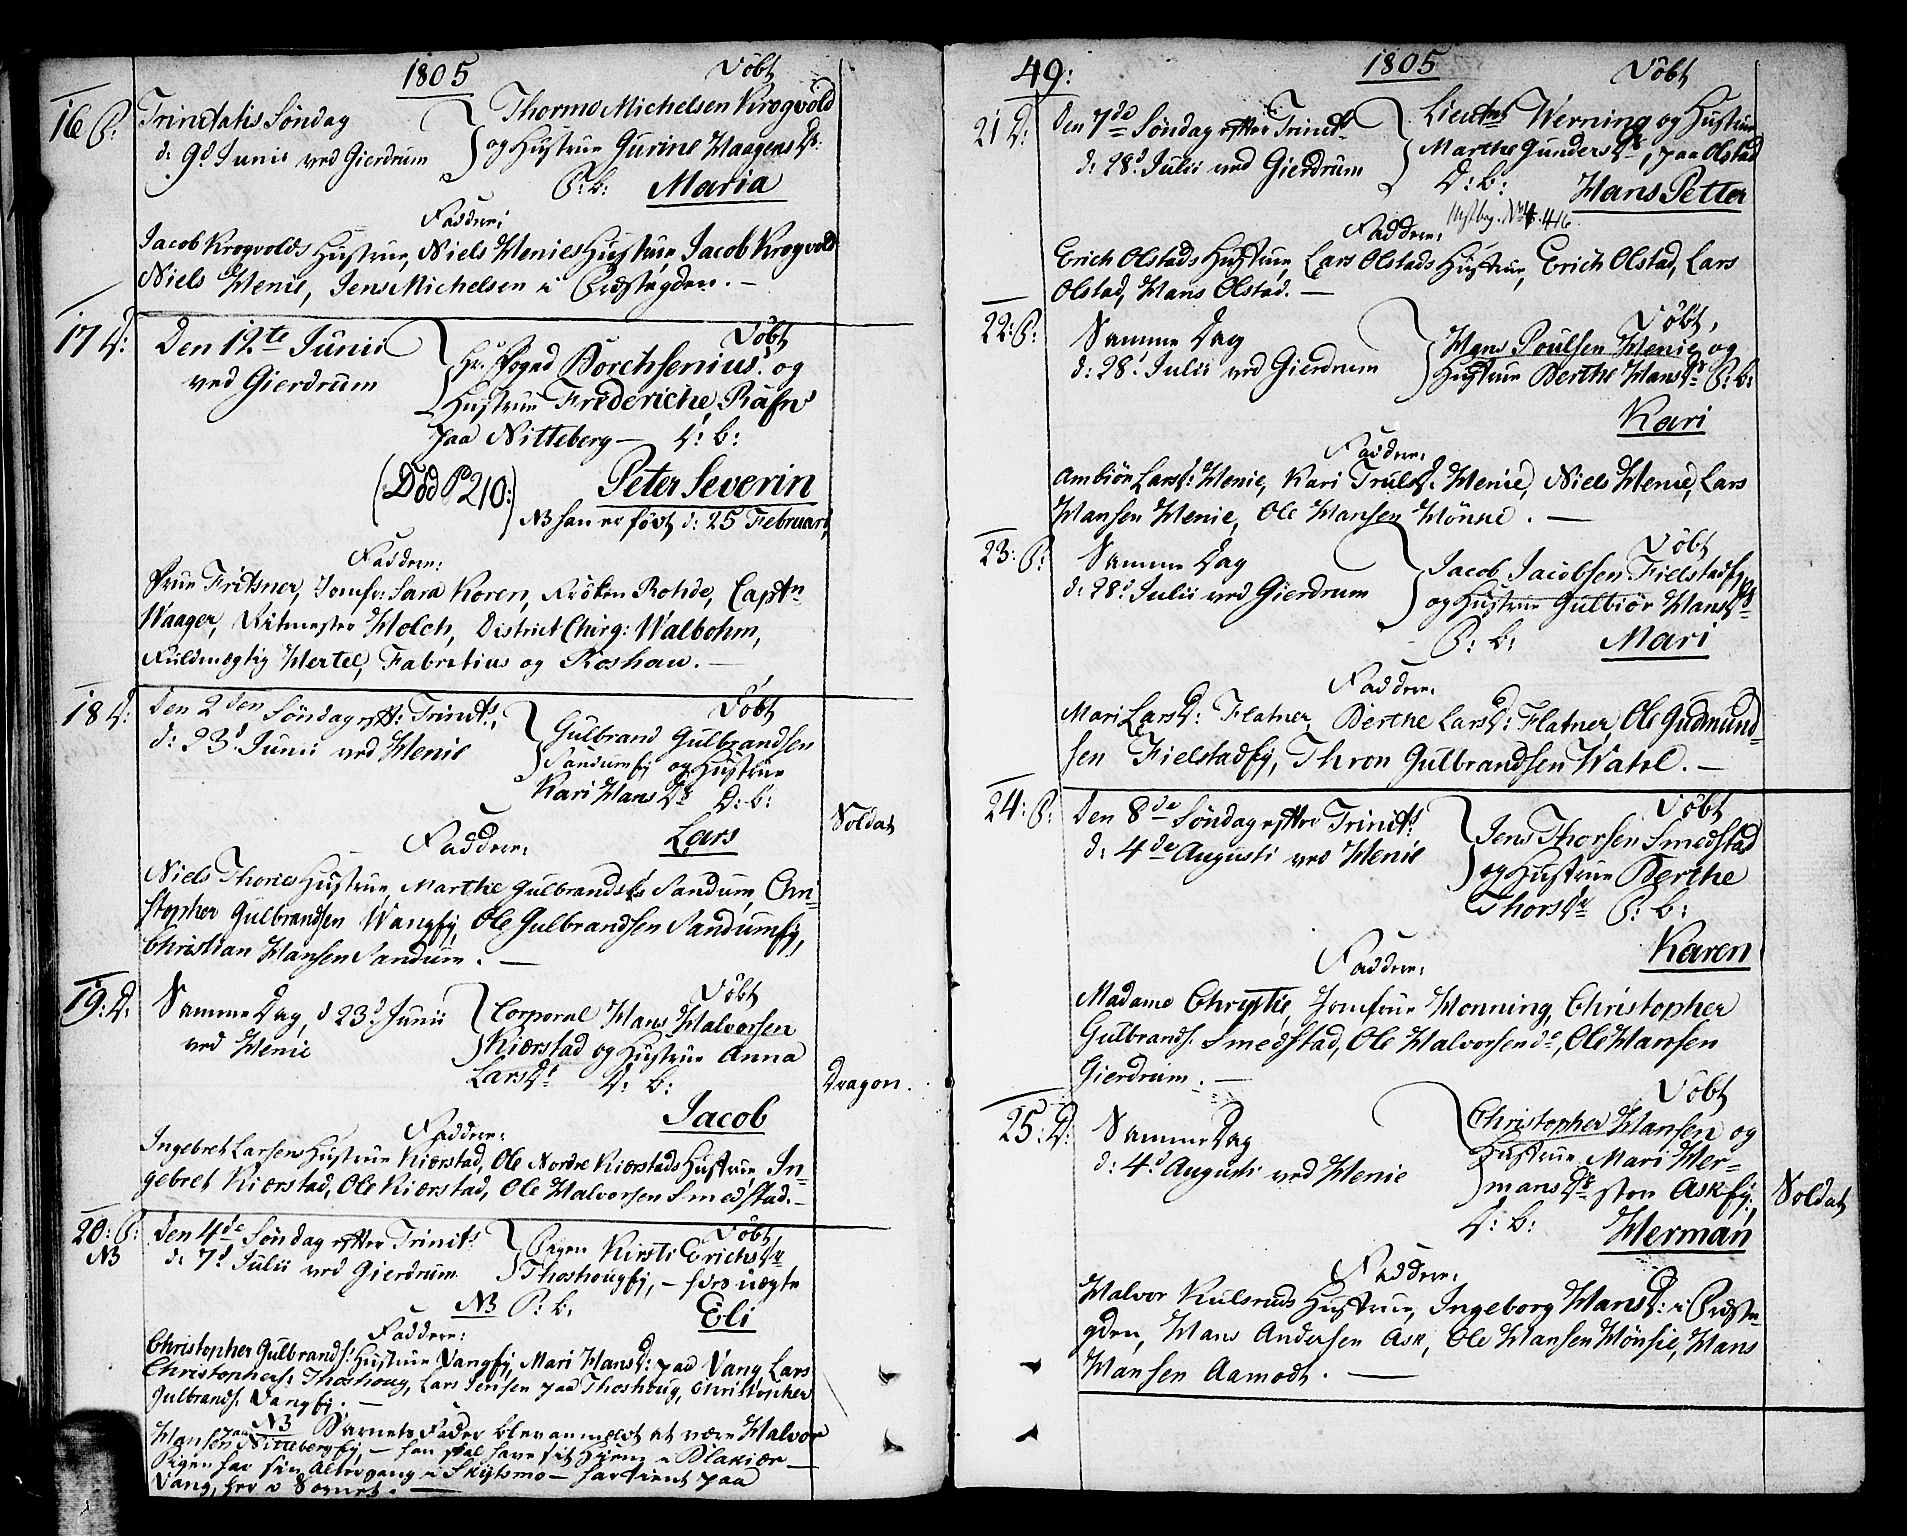 1805
Döbt
16 P:
Trinitatis Söndag
d: 9d Junii ved Gierdrum
Thorm Michelsen Krogvold
og Hustrue Gurine Haagens Dr
P: b: Maria
Faddere:
Jacob Krogvolds Hustrue, Niels Henies Hustrue, Jacob Krogvold
Niels Henie, Jens Michelsen i Præstegden. —
17 D:
Den 12te Junii
ved Gierdrum
Döbt
Hr. Foged Borchsenius og
Hustrue Frideriche Rafn
paa Nitteberg — D: b:
(Död P 210:) Peter Severin
NB han er födt d: 25 Februari
Faddere:
Frue Fritsner, Jomfr: Sara Koren, Fröken Rohde, Captn
Waager, Ritmester Holch, District Chirg: Walbohm,
Fuldmægtig Hertel, Fabritius og Roshau. —
18 D:
Den 2den Söndag eft: Trinits
d: 23d Junii ved Henie
Döbt
Gulbrand Gulbrandsen
Sandumfy og Hustrue
Kari Hans Dr D: b:
Lars
Soldat
Faddere:
Niels Thories Hustrue, Marthe Gulbrands Sandum, Chri-
stopher Gulbrandsen Wangfy, Ole Gulbrandsen Sandumfy,
Christian Hansen Sandum. —
19: D.
Samme Dag, d 23d Junii
ved Henie
Döbt
Corporal Hans Halvorsen
Kiærstad og Hustrue Anna
Lars Dr D: b:
Jacob
Dragon.
Faddere:
Ingebret Larsens Hustrue Kiærstad, Ole Nordre Kiærstads Hustrue, In-
gebret Kiærstad, Ole Kiærstad, Ole Halvorsen Smedstad. —
20: P:
NB
Den 4de Söndag efter Trinits
d: 7d Julii ved Gierdrum
Döbt
Pigen Kirsti Erichs Dr
Thoshougfy, — for uægte
NB P: b: Eli
Faddere:
Christopher Gulbrands: Hustrue Vangfy, Mari Hans D: paa Vang, Lars
Christophers: Thoshoug, Lars Jensen paa Thoshoug, Christopher
Gulbrands. Vangfy. —
NB Barnets Fader blev anmeldt at være Halvor
Hansen paa Nittebergfy, — han skal have sit Hjem i Blakiær —
Pigen har sin Altergang i Skijtsmo — har tient paa
Vang, her i Sognet. —
49:
1805
Döbt
21 D:
Den 7de Söndag efter Trinits
d: 28d Julii ved Gierdrum
Lieutnt Werning og Hustrue
Marthe Gunders Dr, paa Olstad
D: b: Hans Petter
Faddere:
Erich Olstads Hustrue, Lars Olstads Hustrue, Erich Olstad, Lars
Olstad, Hans Olstad. —
22: P:
Samme Dag
d: 28d Julii ved Gierdrum
Döbt,
Hans Poulsen Henie og
Hustrue Berthe Hans Dr P: b:
Kari
Faddere:
Ambiör Lars D: Henie, Kari Truls D. Henie, Niels Henie, Lars
Hansen Henie, Ole Hansen Hönsie. —
23: P:
Samme Dag
d: 28d Julii ved Gierdrum
Döbt
Jacob Jacobsen Fielstadfy
og Hustrue Gulbiör Hans Dr
P: b: Mari
Faddere:
Mari Lars D: Flatner, Berthe Lars D: Flatner, Ole Gudmund-
sen Fielstadfy, Thron Gulbrandsen Watel. —
24: P:
Den 8de Söndag efter Trinits
d: 4de Augusti ved Henie
Döbt
Jens Thorsen Smedstad
og Hustrue Berthe
Thors Dr P: b:
Karen
Faddere:
Madame Chrystie, Jomfrue Honning, Christopher
Gulbrands. Smedstad, Ole Halvorsen do, Ole Hansen
Gierdrum. —
25: D:
Samme Dag
d: 4d Augusti ved Henie
Döbt
Christopher Hansen og
Hustrue Mari Her-
mans Dr Askfy,
D: b: Herman
Soldat
Faddere:
Halvor Kulsruds Hustrue, Ingeborg Hans D: i Præste-
gden, Hans Andersen Ask, Ole Hansen Hönsie, Hans
Hansen Aamodt. —